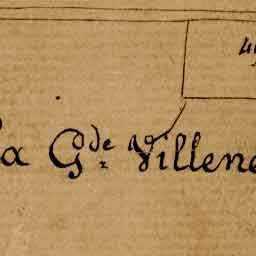 La G.de Villene